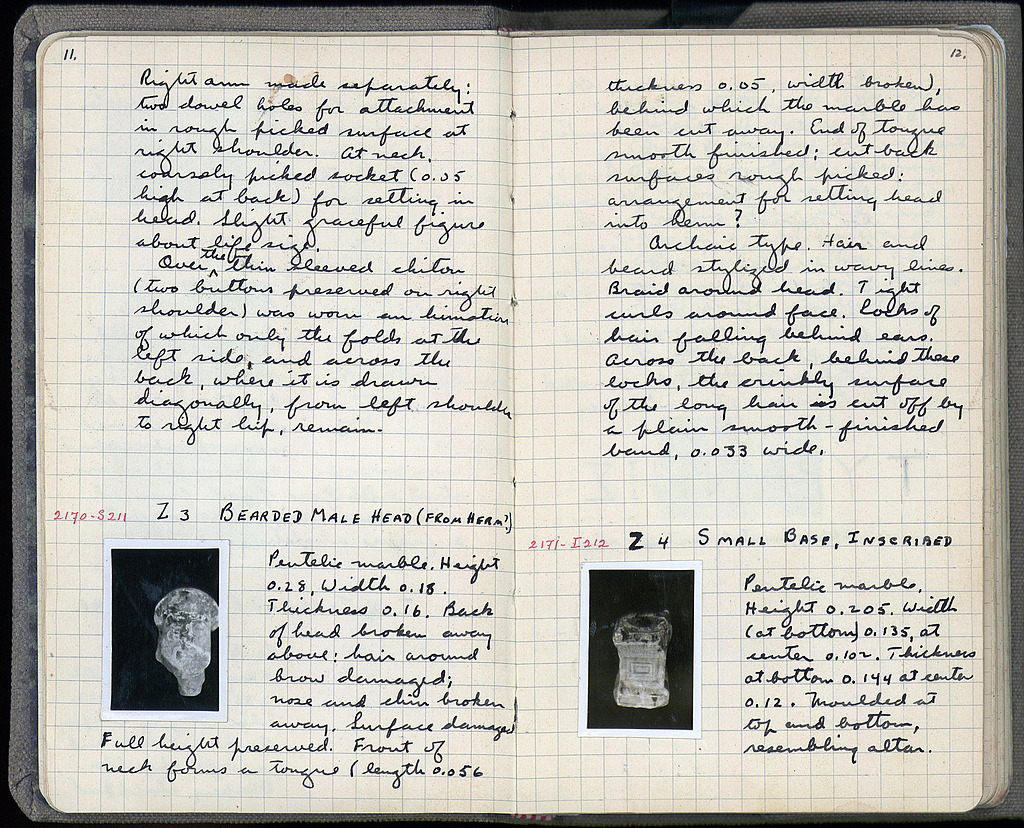 11.
Right arm made separately:
two dowel holes for attachment
in rough picked surface at
right shoulder. At neck,
coarsely picked socket (0.05
high at back) for setting in
head. Slight graceful figure
about life size.
Over the thin sleeved chiton
(two buttons preserved on right
shoulder) was worn an himation
of which only the folds at the
left side, and across the
back, where it is drawn
diagonally, from left shoulder
to right hip, remain.
2170-S211 Z 3 BEARDED MALE HEAD (FROM HERM?)
Pentelic marble. Height
0.28, Width 0.18.
Thickness 0.16. Back
of head broken away
above: hair around
brow damaged;
nose and chin broken
away. Surface damaged
Full height preserved. Front of
neck forms a tongue (length 0.056
12.
thickness 0.05, width broken),
behind which the marble has
been cut away. End of tongue
smooth finished; cut-back
surfaces rough picked:
arrangement for setting head
into herm?
Archaic type. Hair and
beard stylized in wavy lines.
Braid around head. Tight
curls around face. Locks of
hair falling behind ears.
Across the back, behind these
locks, the crinkly surface
of the long hair is cut off by
a plain smooth-finished
band, 0.033 wide.
2171-I212 Z 4 SMALL BASE, INSCRIBED
Pentelic marble.
Height 0.205. Width
(at bottom) 0.135, at
center 0.102. Thickness
at bottom 0.144 at center
0.12. Moulded at
top and bottom,
resembling altar.